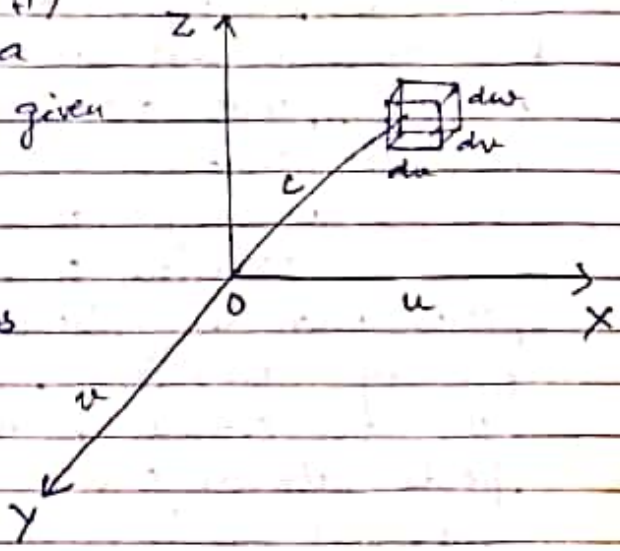 Z
a
given
dw
dv
du
c
O
u
X
s
v
Y